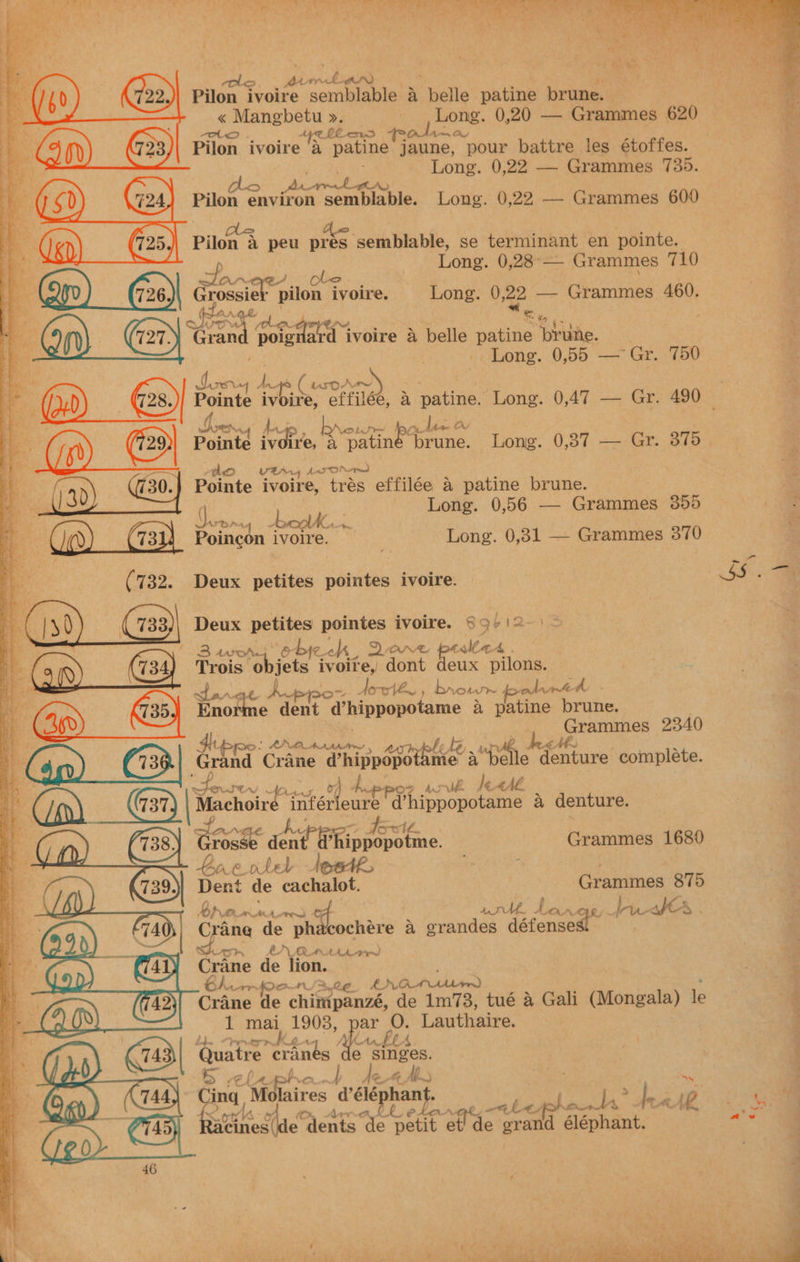 do similar
160 722. Pilon ivoire semblable à belle patine brune.
« Mangbetu ». Long. 0,20 — Grammes 620
do yellow patina
723. Pilon ivoire à patine jaune, pour battre les étoffes.
Long. 0,22 — Grammes 735.
do similar
150 724. Pilon environ semblable. Long. 0,22 — Grammes 600
do do
725. Pilon à peu près semblable, se terminant en pointe.
Long. 0,28 — Grammes 710
Large do
726. Grossier pilon ivoire. Long. 0,22 — Grammes 460.
Large
727. Grand poignard ivoire à belle patine brune.
Long. 0,55 — Gr. 750
Ivory tip (worn)
728. Pointe ivoire, effilée, à patine. Long. 0,47 — Gr. 490
Ivory tip, brown patina
729. Pointe ivoire, à patine brune. Long. 0,37 — Gr. 375
do very worn
130 730. Pointe ivoire, très effilée à patine brune.
Long. 0,56 — Grammes 355
Ivory
731. Poinçon ivoire. Long. 0,31 — Grammes 370
(732. Deux petites pointes ivoire.
733. Deux petites pointes ivoire.
3 ivory objects, 2 are pestles.
734. Trois objets ivoire, dont deux pilons.
Large hippo- tooth, brown patined
735. Énorme dent d'hippopotame à patine brune.
Grammes 2340
Hippo: cranium, complete with teeth
736. Grand Crâne d'hippopotame à belle denture complète.
Lower jaw of hippo with teeth
737. Machoire inférieure d'hippopotame à denture.
Large hippo- tooth
738. Grosse dent d'hippopotme. Grammes 1680
Cachalot tooth
739. Dent de cachalot. Grammes 875
Cranium of with large tusks
740. Crâne de phacochère à grandes défenses
Lion cranium
741. Crâne de lion.
Chimpanzee cranium
742. Crâne de chimpanzé, de 1m73, tué à Gali (Mongala) le
1 mai 1903, par O. Lauthaire.
monkey skulls
743. Quatre crânes de singes.
5 elephant teeth
744. Cinq Molaires d'éléphant.
roots of small & large elephant's teeth
745. Racines de dents de petit et de grand éléphant.
46